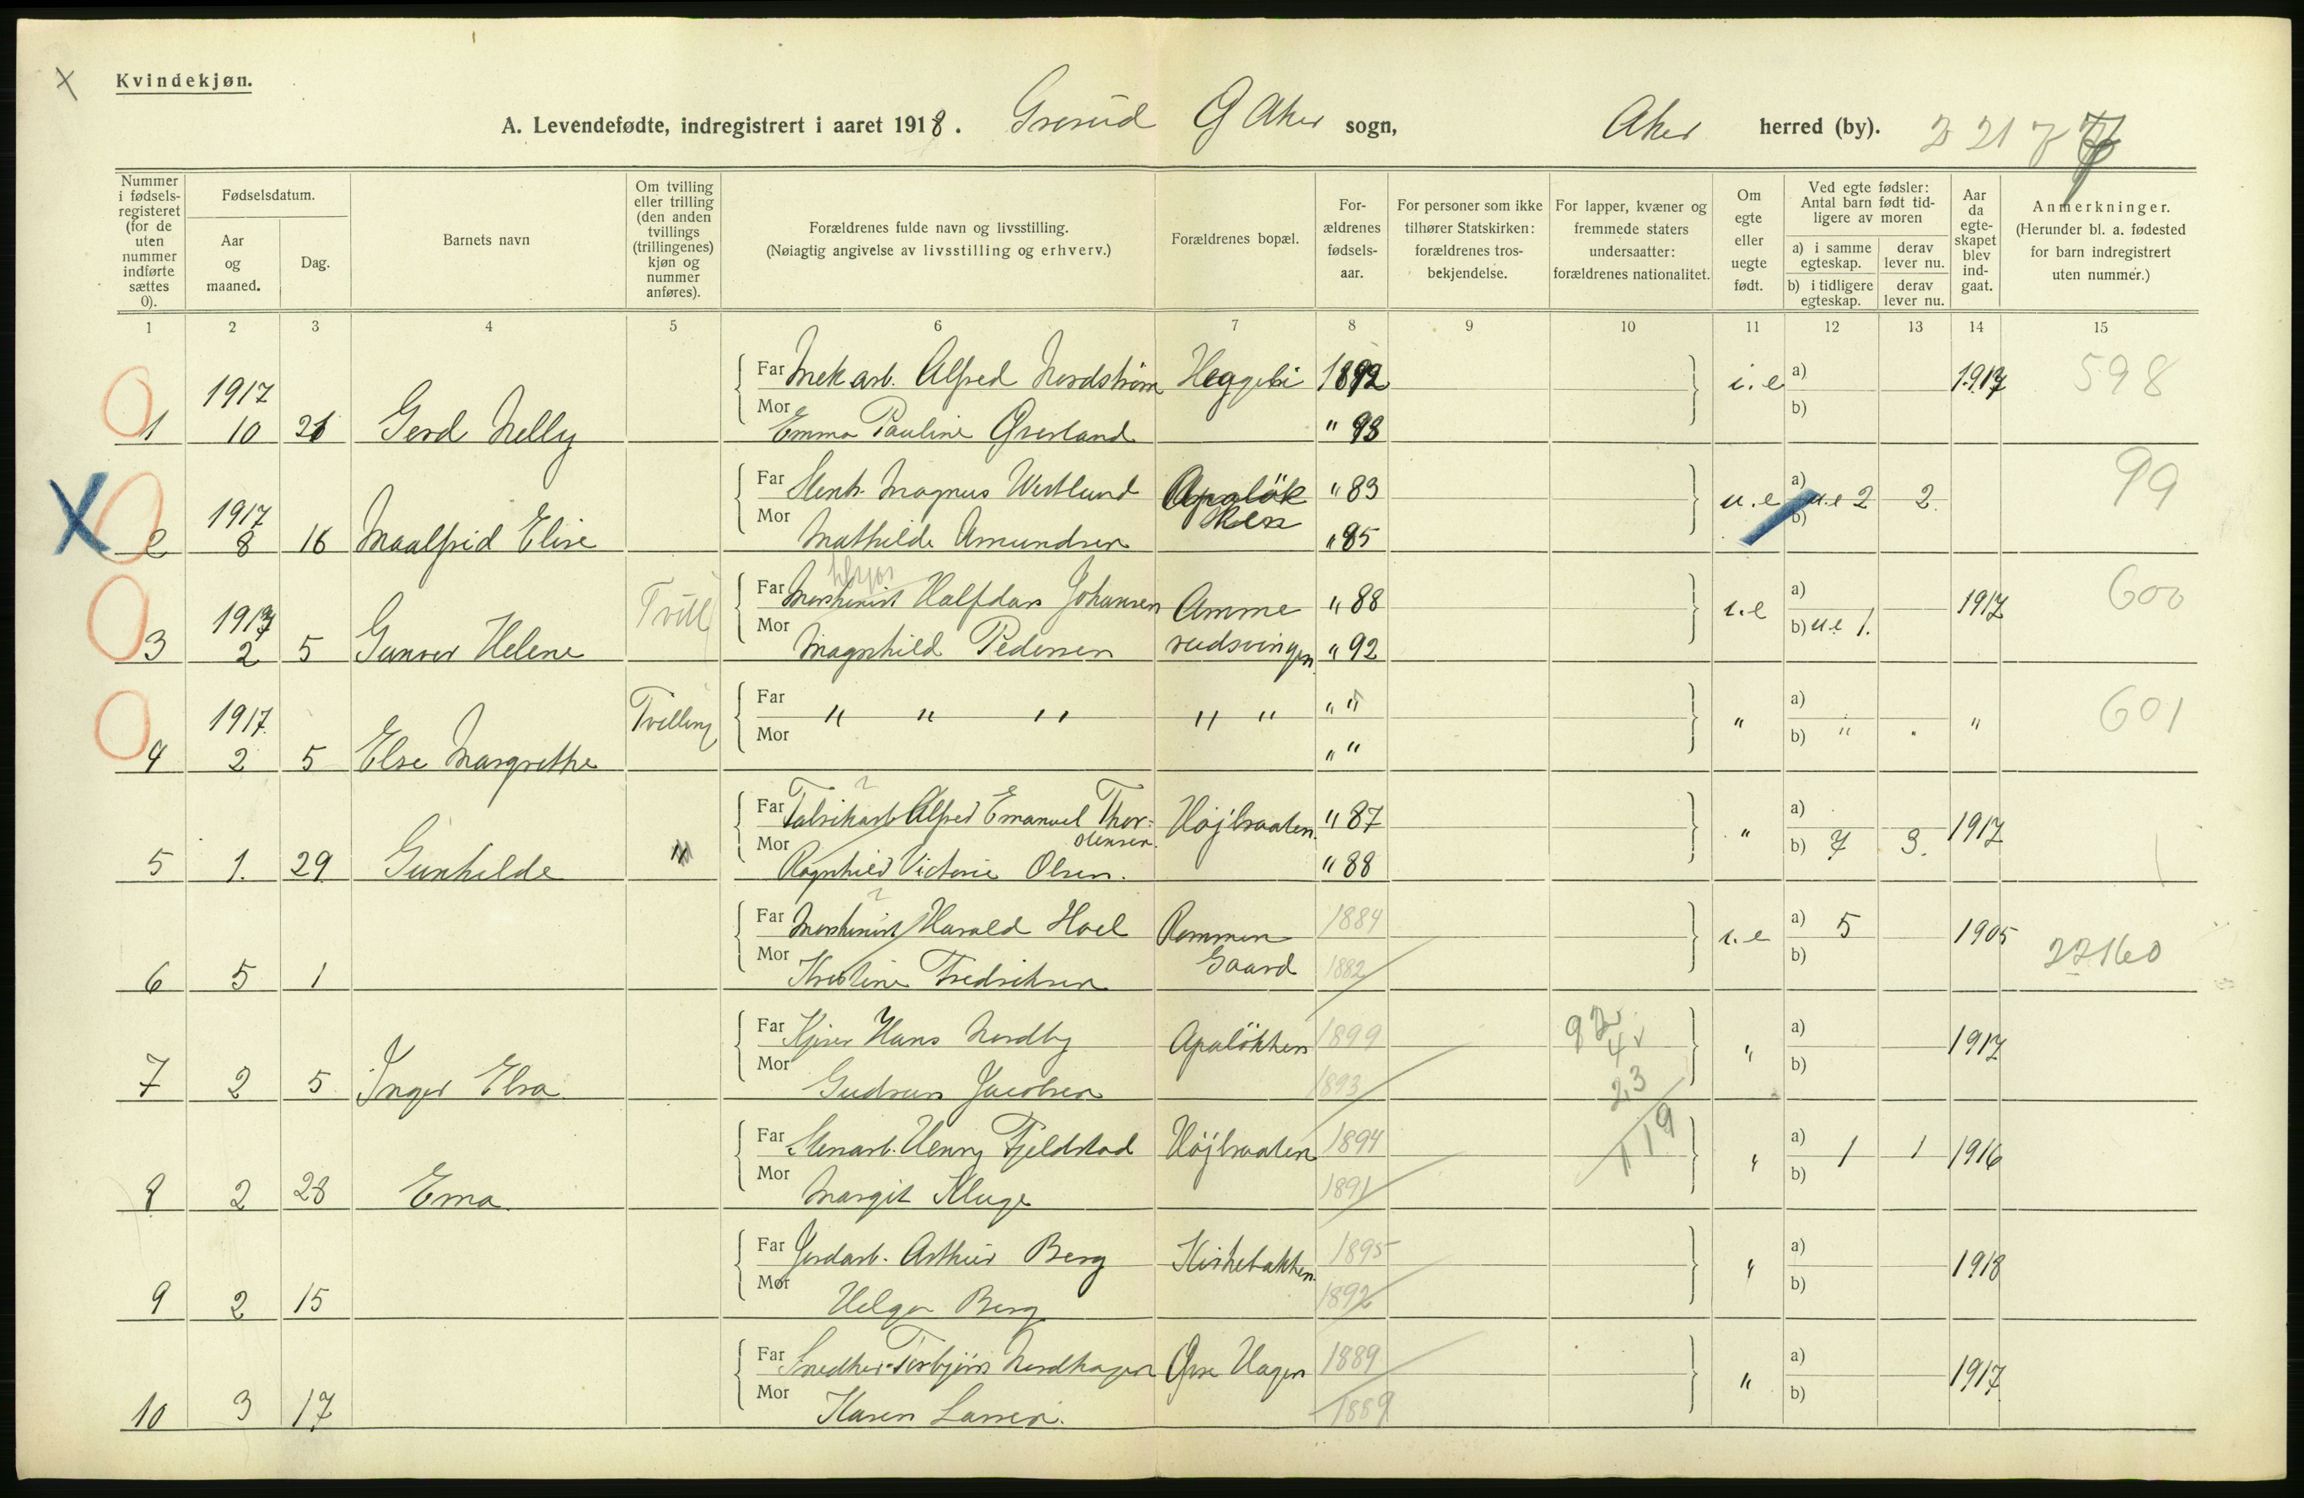 Kvindekjøn.
A. Levendefødte, indregistrert i aaret 1918. Grorud Ø Aker sogn, Aker herred (by).
Nummer i fødselsregisteret (for de uten nummer indførte sættes 0).
Fødselsdatum.
Aar og maaned.
Dag.
Barnets navn
Om tvilling eller trilling (den anden tvillings (trillingenes) kjøn og nummer anføres).
Forældrenes fulde navn og livsstilling.
(Nøiagtig angivelse av livsstilling og erhverv.)
Forældrenes bopæl.
For-ældrenes fødsels-aar.
For personer som ikke tilhører Statskirken: forældrenes tros-bekjendelse.
For lapper, kvæner og fremmede staters undersaatter: forældrenes nationalitet.
Om egte eller uegte født.
Ved egte fødsler: Antal barn født tid-ligere av moren
a) i samme egteskap.
derav lever nu.
b) i tidligere egteskap.
derav lever nu.
Aar da egte-skapet blev ind-gaat.
Anmerkninger.
(Herunder bl. a. fødested for barn indregistrert uten nummer.)
1 2 3 4 5 6 7 8 9 10 11 12 13 14 15
Far Mek arb. Alfred Nordstrøm Heggeli 1892 i. e a) 1917 598
1 1917 10 21 Gerd Nelly Mor Emma Pauline Øverland " 93 b)
Far Stenh. Magnus Westlund Apaløkken " 83 u. e a) u.e 2 2 99
2 1917 8 16 Maalfrid Elise Mor Mathilde Amundsen " 85 b)
Far Maskinist Halfdan Johansen Ammerudsvingen " 88 i. e a) 1917 600
3 1917 2 5 Gunvor Helene Tvill Mor Magnhild Pedersen " 92 b) ue 1.
Far " " " " " " " " a) " 601
4 1917 2 5 Else Margrethe Tvilling Mor " " b) "
Far Fabrikarb Alfred Emanuel Thorstensen Højbraaten " 87 " a) 1917
5 1. 29 Gunhilde Mor Ragnhild Victoria Olsen. " 88 b) 7 3.
Far Maskinist Harald Hoel Rommen Gaard 1884 i. e a) 5 1905 22160
6 5 1 Mor Kristine Fredriksen 1882 b)
Far Kjører Hans Nordby Apaløkken 1899 " a) 1917
7 2 5 Inger Elsa Mor Gudrun Jacobsen 1893 b)
23
119
Far Stenarb. Henry Fjeldstad Højbraaten 1894 " a) 1 1 1916
8 2 28 Erna Mor Margit Kluge 1891 b)
Far Jordarb. Arthur Berg Kirkebakken 1895 " a) 1918
9 2 15 Mor Helga Berg 1892 b)
Far Snedker Torbjørn Nordhagen Øvre Hagen 1889 " a) 1917
10 3 17 Mor Karen Larsen. 1889 b)